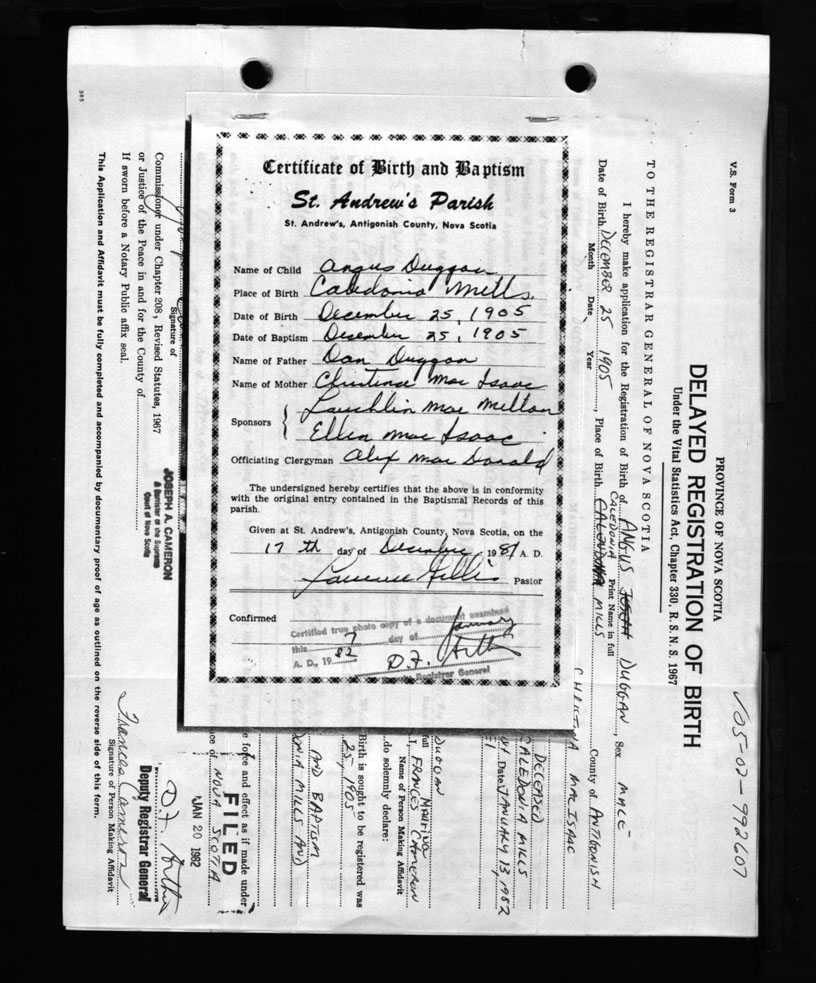 Certificate of Birth and Baptism
St. Andrew's Parish
St. Andrew's, Antigonish County, Nova Scotia
Name of Child Angus Duggan
Place of Birth Caledonia Mills.
Date of Birth December 25, 1905
Date of Baptism December 25, 1905
Name of Father Dan Duggan
Name of Mother Christena Mac Isaac
Sponsors { Lauchlin Mac Millan
Ellen Mac Isaac
Officiating Clergyman Alex Mac Donald
The undersigned hereby certifies that the above is in conformity
with the original entry contained in the Baptismal Records of this
parish.
Given at St. Andrew's, Antigonish County, Nova Scotia, on the
17 th day of December, 1981 A. D.
Pastor
Confirmed
Certified true photo copy of a document examined
this 7 day of January
A. D., 19 82
Registrar General
V.S. Form 3
V05-02-992607
PROVINCE OF NOVA SCOTIA
DELAYED REGISTRATION OF BIRTH
Under the Vital Statistics Act, Chapter 330, R. S. N. S. 1967
TO THE REGISTRAR GENERAL OF NOVA SCOTIA
I hereby make application for the Registration of Birth of ANGUS JOSEPH DUGGAN, Sex MALE
Print Name in full
CALEDONIA
Date of Birth DECEMBER 25 1905, Place of Birth MILLS County of ANTIGONISH
Month Date Year
CHRISTINA MACISAAC
DECEASED
CALEDONIA MILLS
Date JANUARY 13, 1982
DUGGAN
full MARINO
I, FRANCES CAMERON
Name of Person Making Affidavit
do solemnly declare:
Birth is sought to be registered was
25, 1905
AND BAPTISM
MILLS AND
force and effect as if made under
of NOVA SCOTIA
FILED
JAN 20 1982
Deputy Registrar General
Frances Cameron
Signature of Person Making Affidavit
Signature of
Commissioner under Chapter 208, Revised Statutes, 1967
or Justice of the Peace in and for the County of
If sworn before a Notary Public affix seal.
JOSEPH A. CAMERON
A Barrister of the Supreme
Court of Nova Scotia
This Application and Affidavit must be fully completed and accompanied by documentary proof of age as outlined on the reverse side of this form.